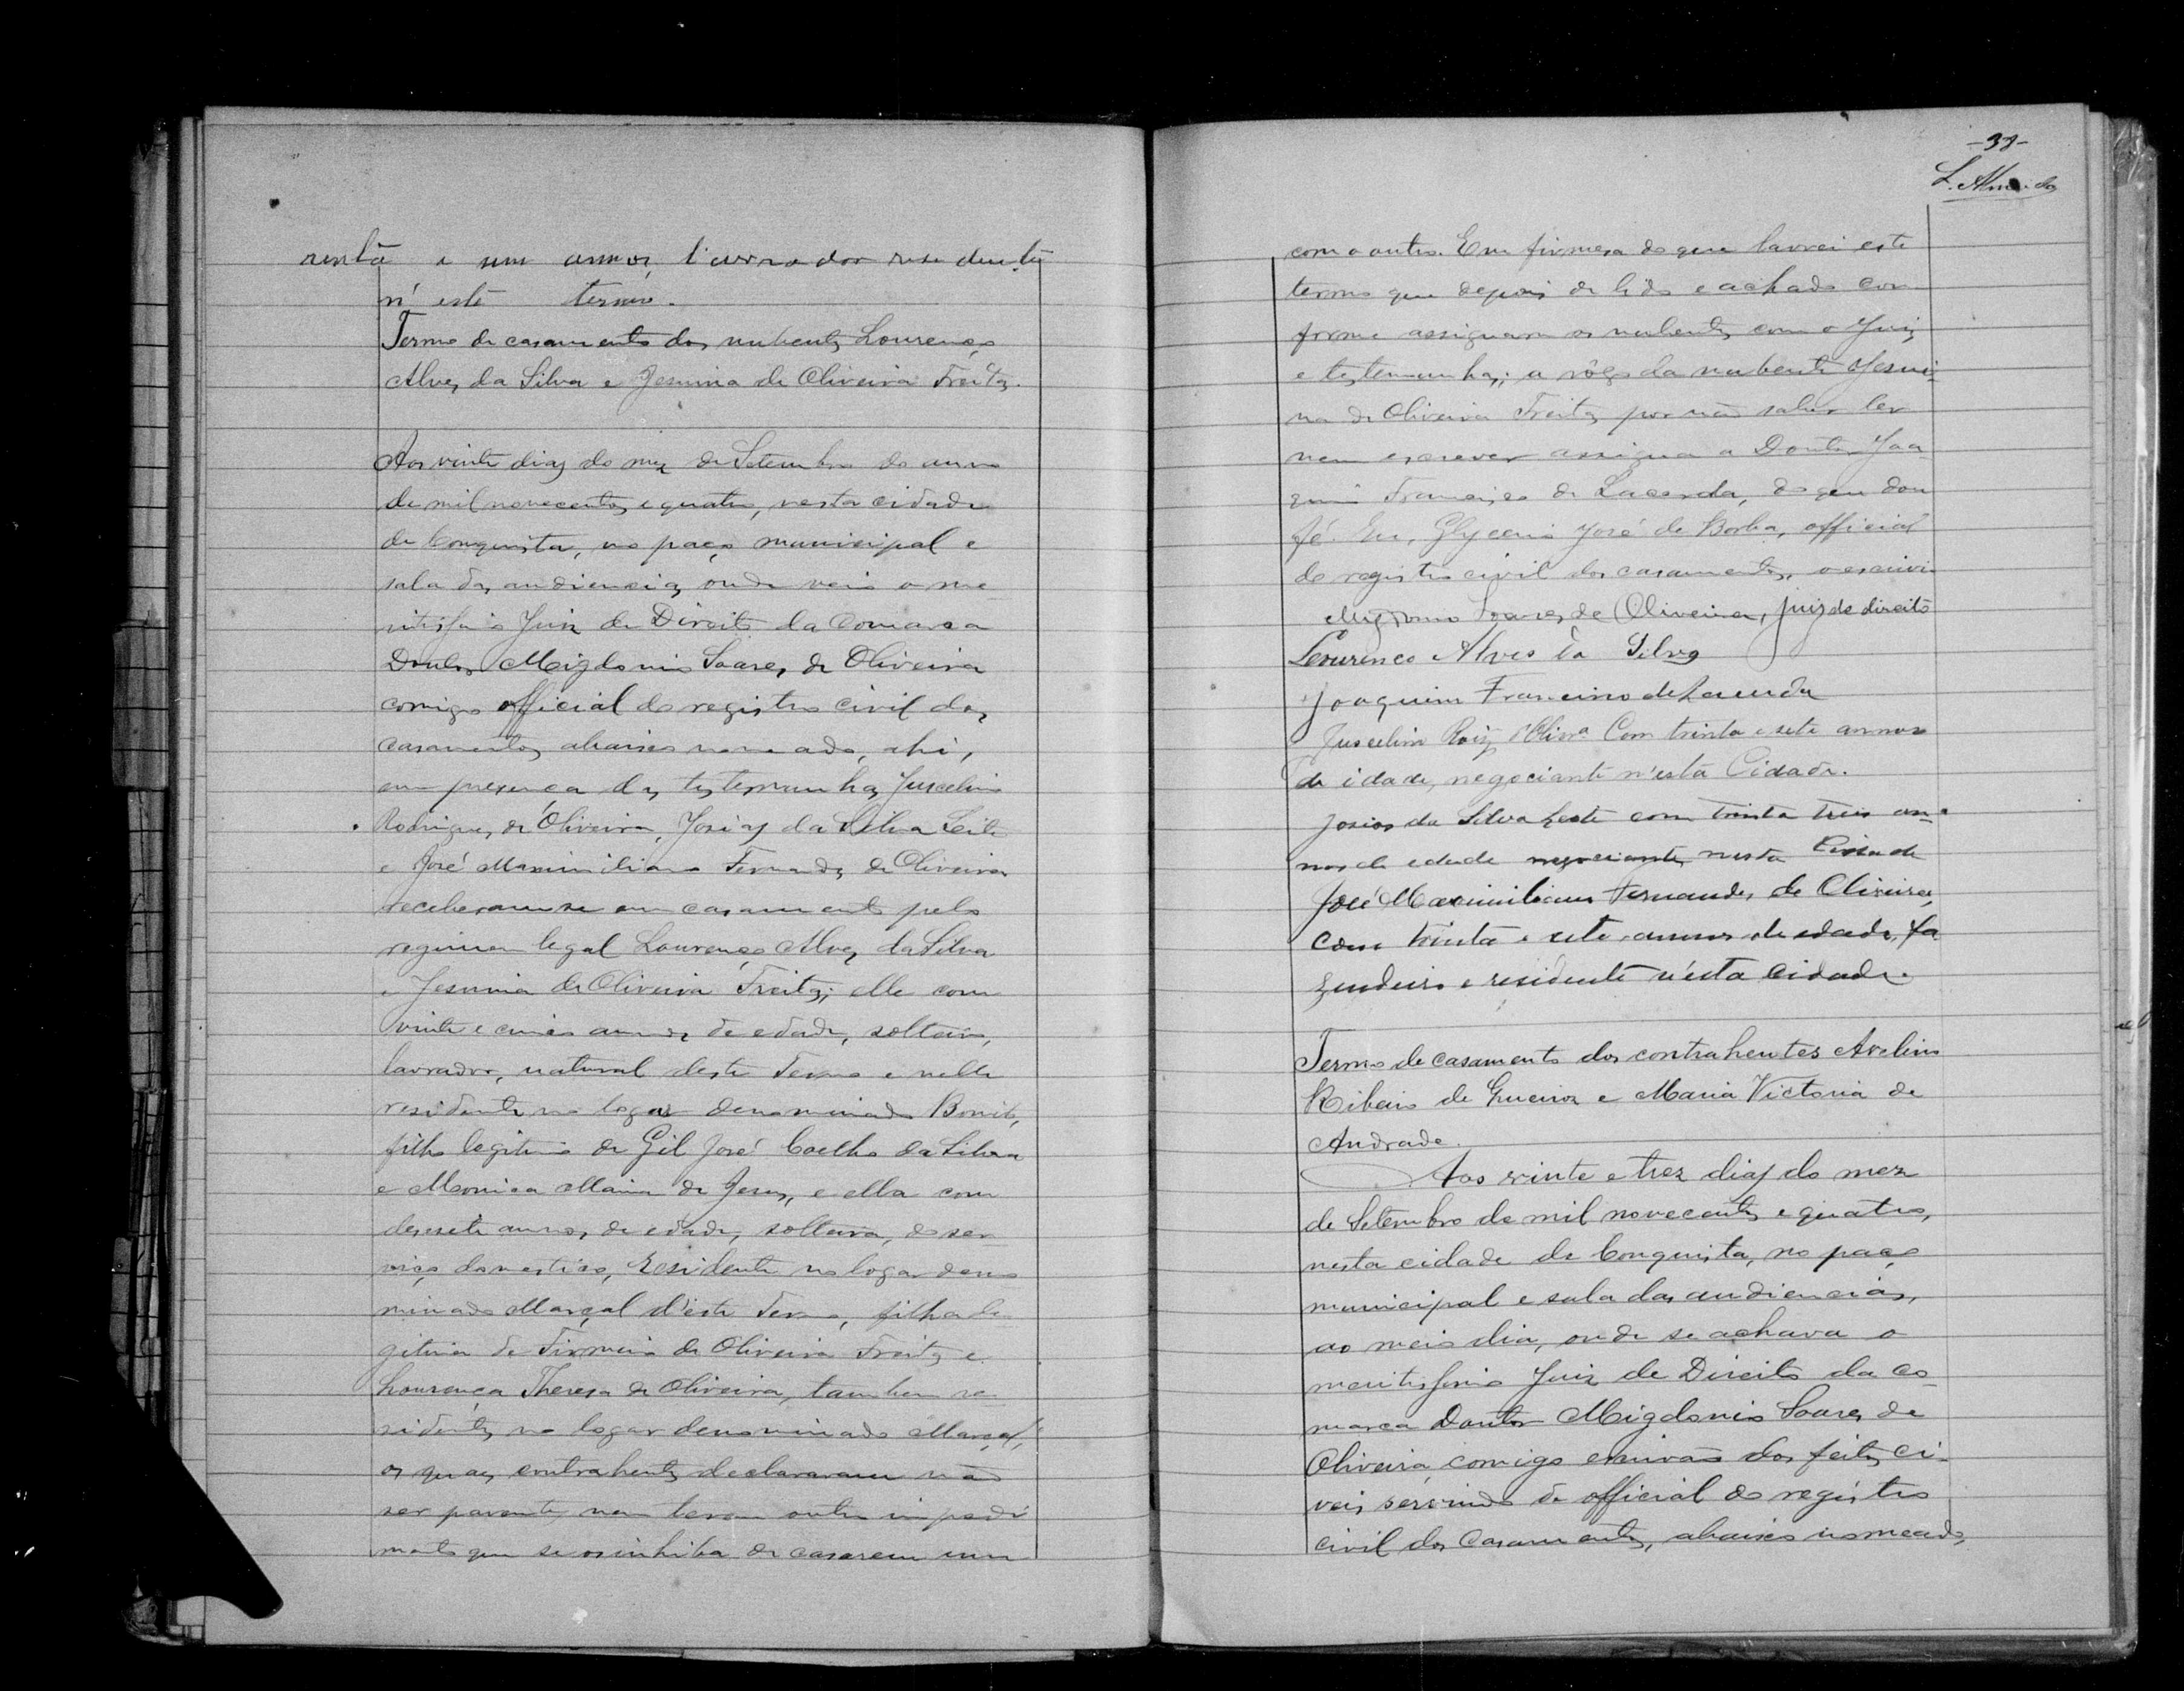 renta e um annos, lavrador residente
n'este termo.
Termo de casamento dos nubentes Lourenço
Alves da Silva e Jesuina de Oliveira Freitas.
Aos vinte dias do mez de Setembro do anno
de mil novecentos e quatro, nesta cidade
de Conquista, no paço municipal e
sala das audiencias onde veio o me
ritissimo Juiz de Direito da Comarca
Doutor Migdonio Soares de Oliveira
comigo official do registro civil dos
casamentos abaixo nomeado, ahi,
em presença das testemunhas Juscelino
Rodrigues de Oliveira, Josias da Silva Leite
e José Maximiliano Fernandes de Oliveira
receberam-se em casamento pelo
regimen legal Lourenço Alves da Silva
e Jesuina de Oliveira Freitas; elle com
vinte e cinco annos de edade, solteiro,
lavrador, natural deste Termo e nelle
residente no logar denominado Bonito,
filho legitimo de Gil José Coelho da Silva
e Monica Maria de Jesus, e ella com
desesete annos de edade, solteira, do ser
viço domestico, residente no logar deno
minado Marçal d'este Termo, filha le
gitima de Firmino de Oliveira Freitas e
Lourença Thereza de Oliveira, tambem re
sidentes no logar denominado Marçal,
os quaes contrahentes declararam não
ser parentes nem terem outro impedi
mento que se os inhiba de casarem um
-38-
L. Almeida
com o outro. Em firmeza do que lavrei este
termo que depois de lido e achado con
forme assignam os nubentes com o Juiz
e testemunhas; a rôgo da nubente Jesui-
na de Oliveira Freitas por não saber ler
nem escrever assigna o Doutor Joa-
quim Francisco de Lacerda, do que dou
fé. Eu, Glycerio José de Borba, official
do registro civil dos casamentos, o escrivi
Migdonio Soares de Oliveira, juiz de direito
Lourenco Alves da Silva
Joaquim Francisco de Lacerda
Juscelino Roiz d'Olivra Com trinta e sete annos
de idade, negociante n'esta Cidade.
Josias da Silva Leite com trinta treis an-
nos de edade negociante nesta Cidade
José Maximiliano Fernandes de Oliveira,
com trinta e sete annos de edade, fa
zendeiro e residente n'esta Cidade.
Termo de casamento dos contrahentes Avelino
Ribeiro de e Maria Victoria de
Andrade.
Aos vinte e trez dias do mez
de Setembro de mil novecentos e quatro,
nesta cidade de Conquista, no paço
municipal e sala das audiencias,
ao meio dia, onde se achava o
meritissimo Juiz de Direito da co-
marca Doutor Migdonio Soares de
Oliveira comigo escrivão dos feitos ci-
veis servindo de official do registro
civil dos Casamentos, abaixo nomeado,